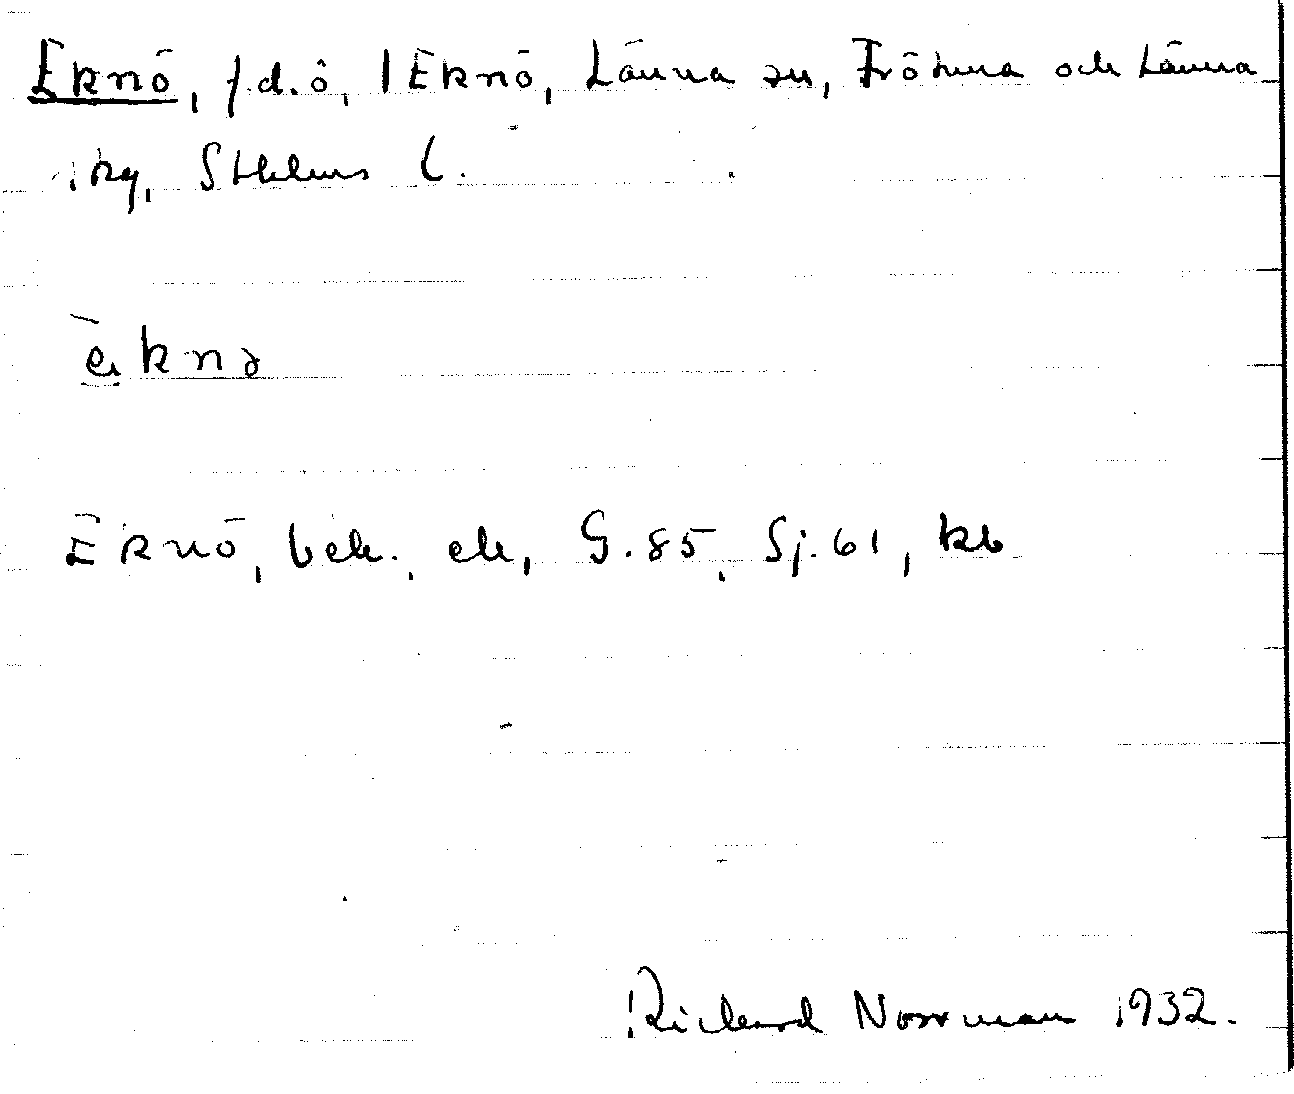 Eknö, f.d. ö, 1 Eknö, Länna sn, Frötuna och Länna
Sthlms l.
Eknö, beb., ek, G. 85, Sj. 61, kb
Richard Norrman 1932.